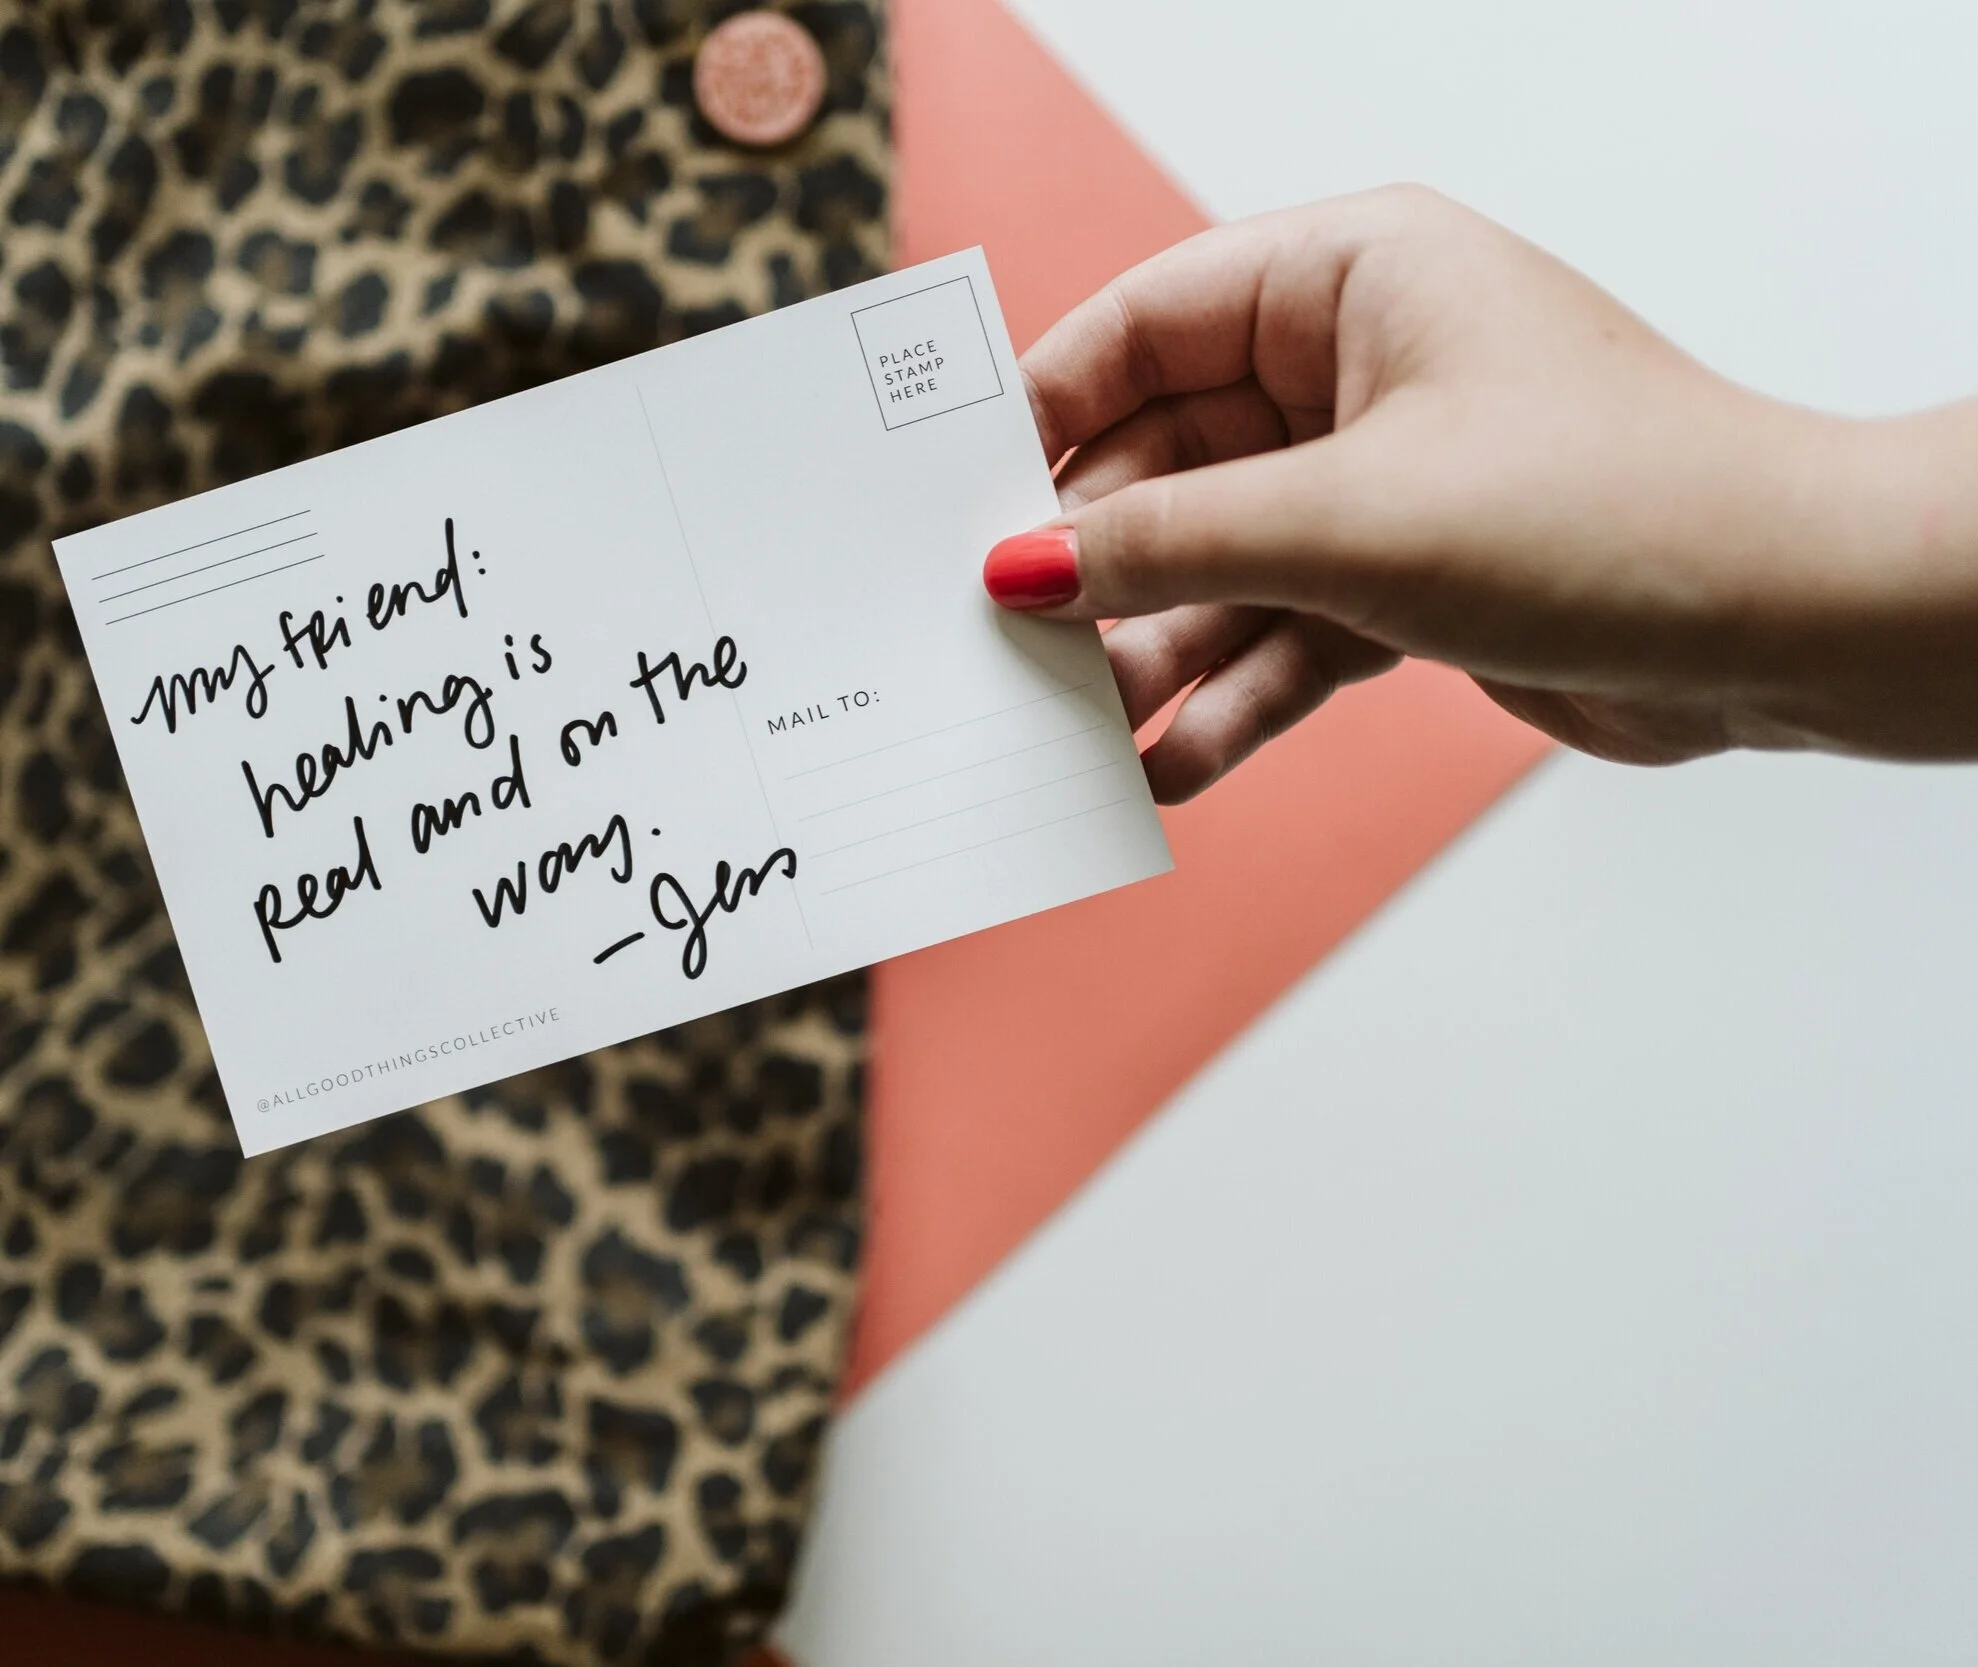 PLACE
STAMP
HERE
my friend:
healing is
real and on the
way.
-Jess
MAIL TO:
@ALLGOODTHINGSCOLLECTIVE